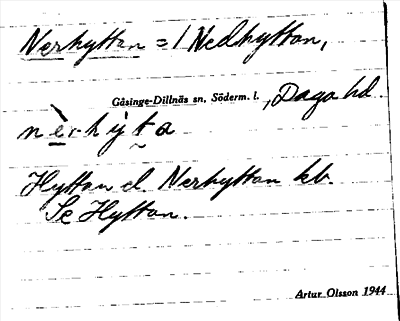 Nerhyttan = / Nedhyttan,
Gåsinge-Dillnäs sn, Söderm. l., Daga hd.
nè̱r-hẏta
Hyttan el. Nerhyttan kb.
Se Hyttan.
Artur Olsson 1944